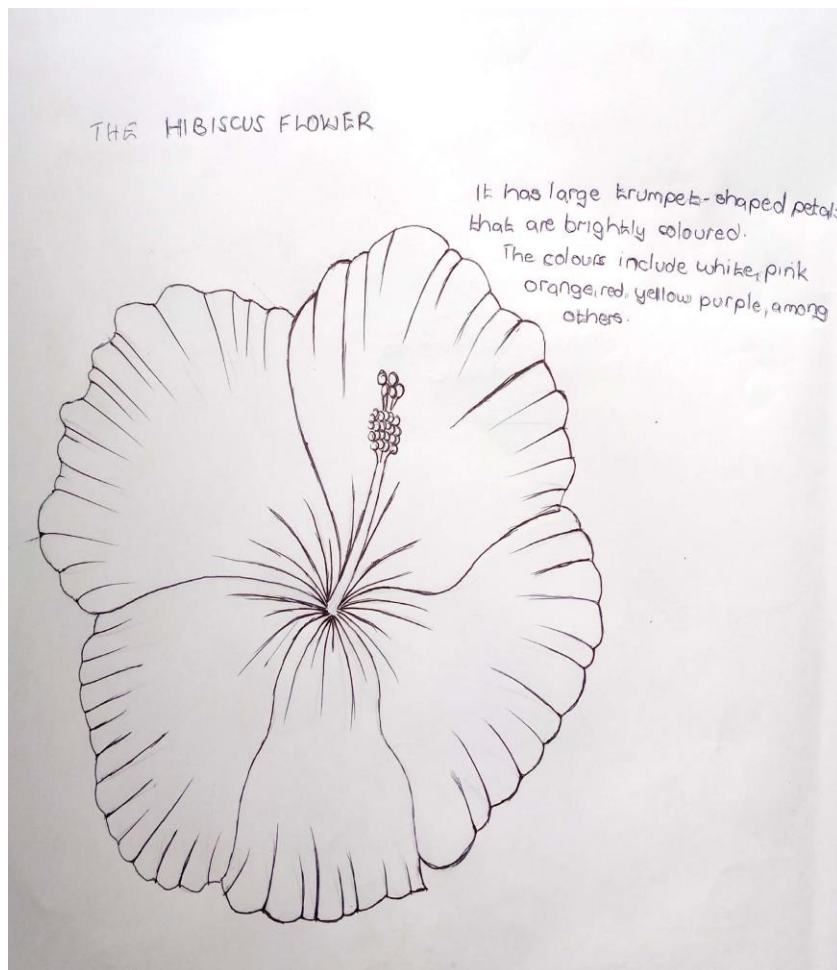 THE HIBISCUS FLOWER
It has large trumpet-shaped petals
that are brightly coloured.
The colours include white, pink
orange, red, yellow purple, among
others.